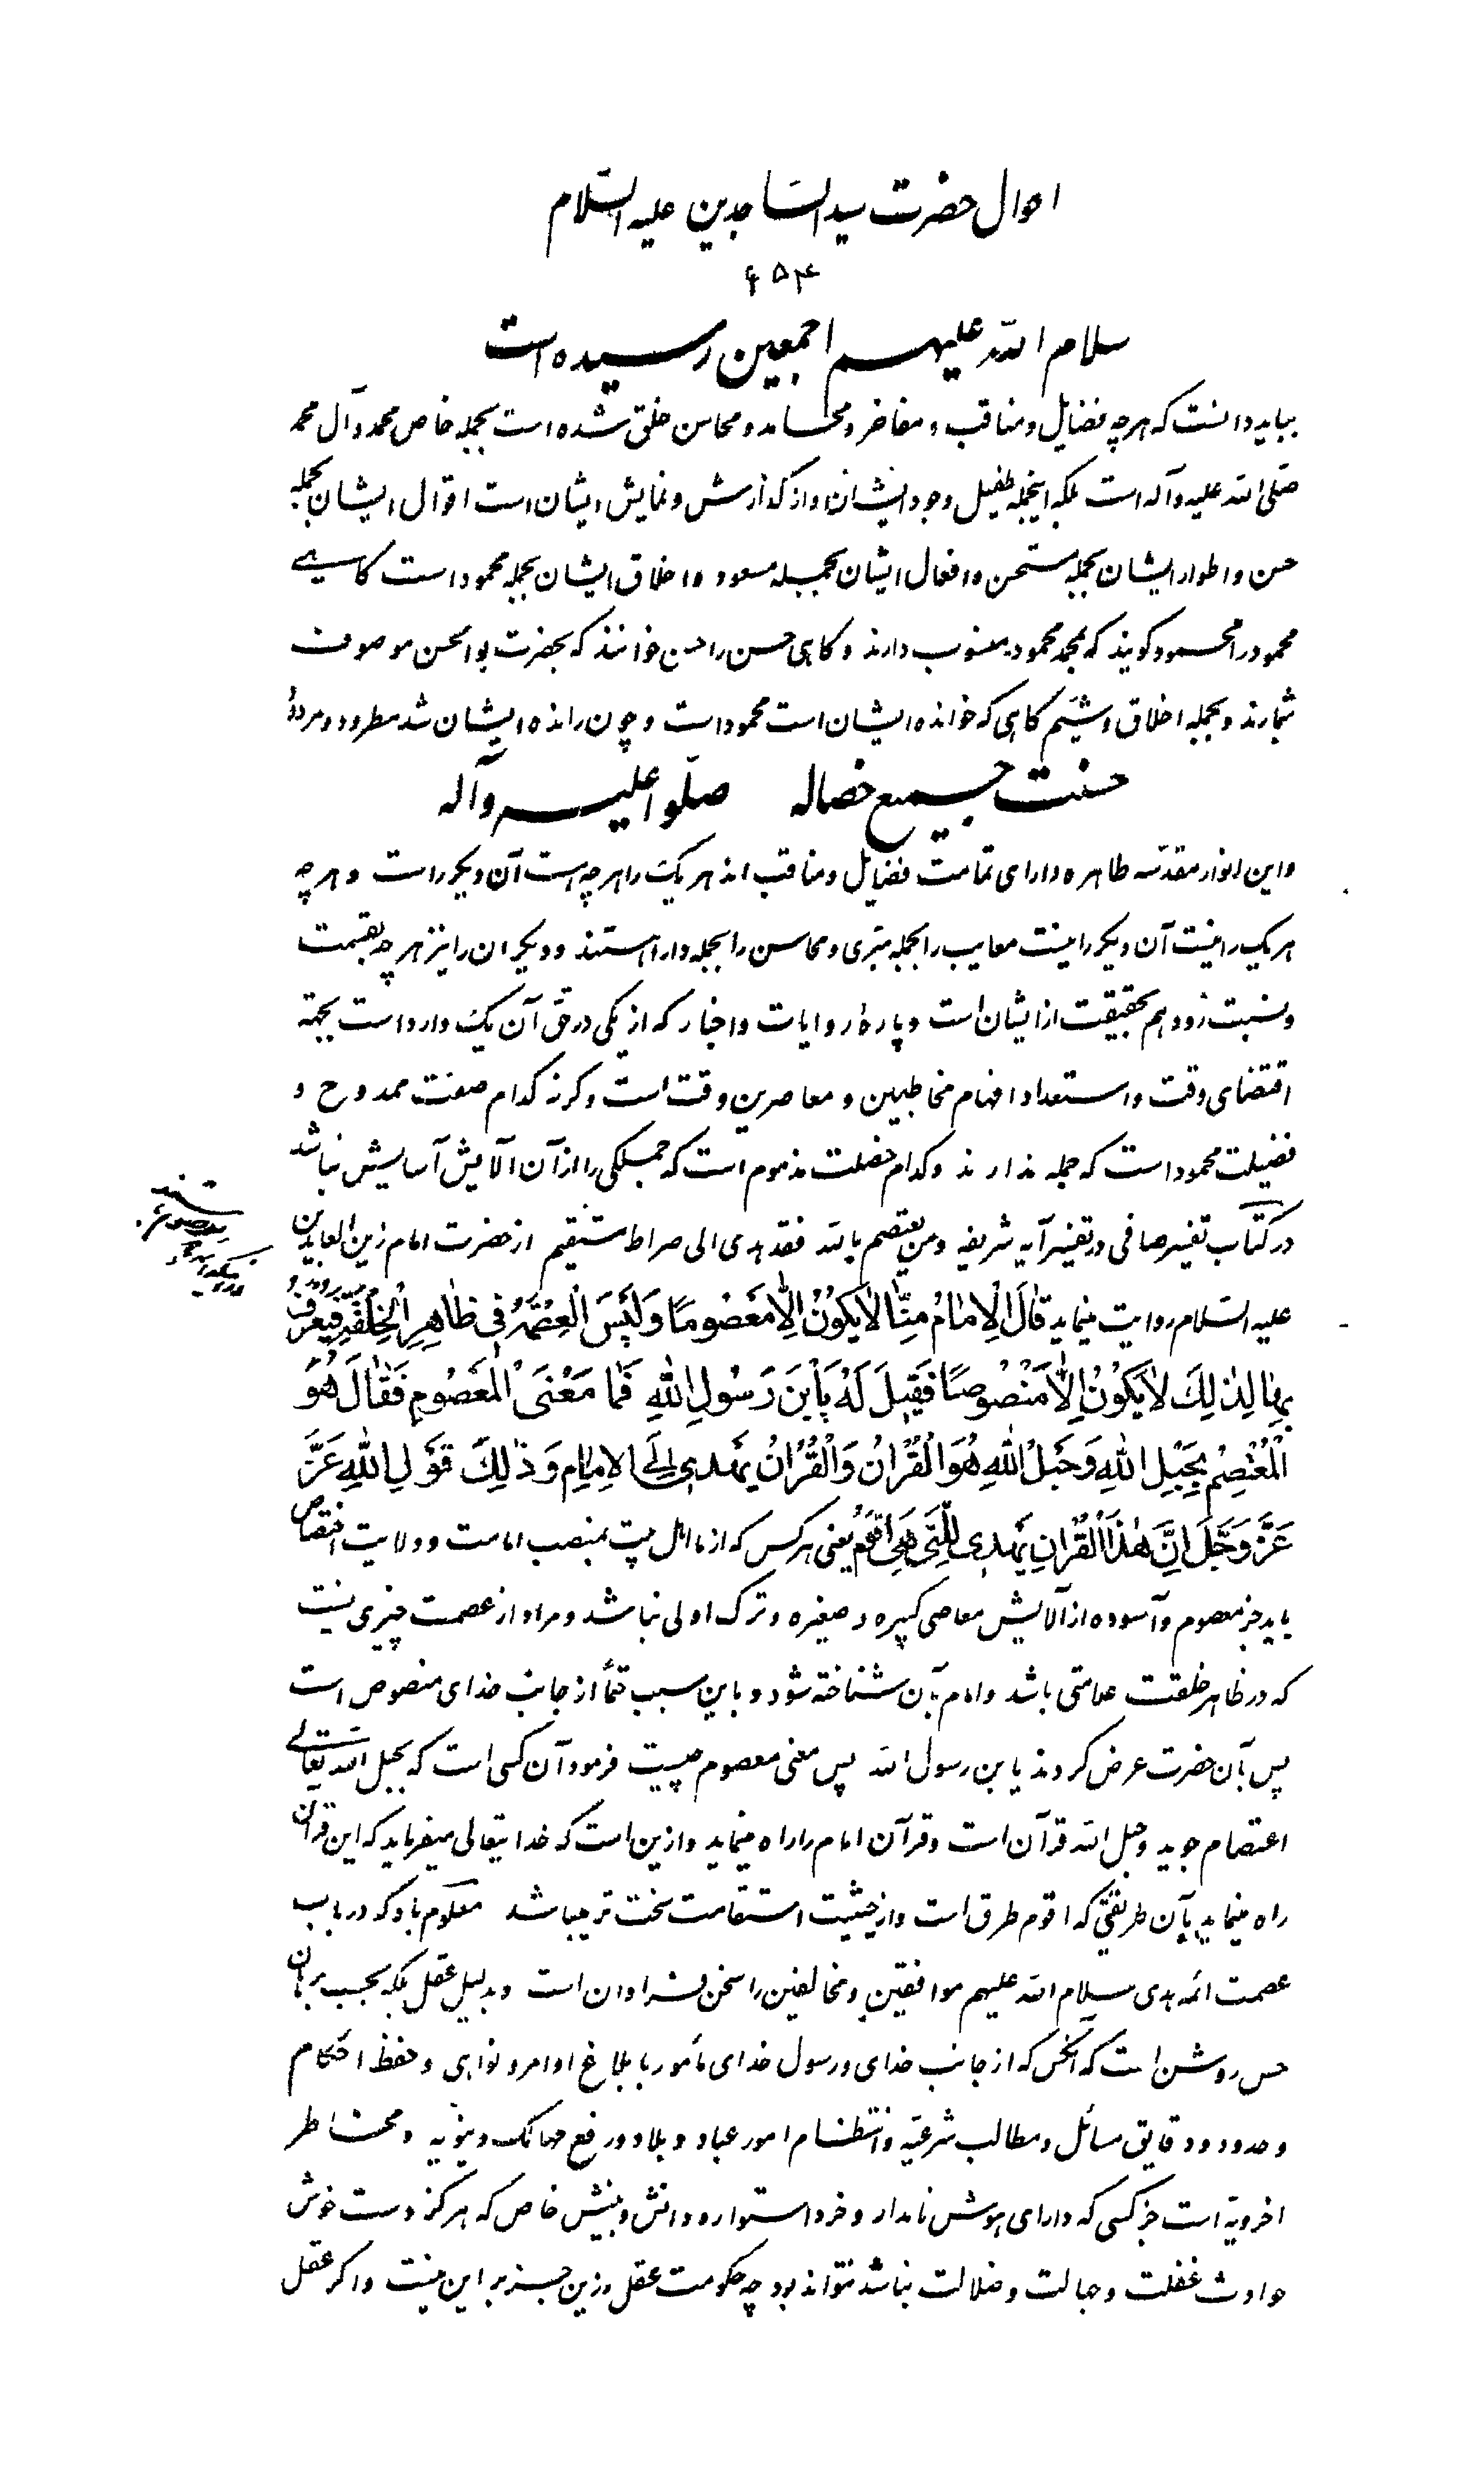 احوال حضرت سید الساجدین علیه السّلام
۴۵۴
سلام اللّه علیهم اجمعین رسیده است
بباید دانست که هرچه فضایل و مناقب و مفاخر و محامد و محاسن خلق شده است بجمله خاص محمد و آل محمد
صلّی اللّه علیه و آله است بلکه اینجمله طفیل وجود ایشان و از گذارش و نمایش ایشان است اقوال ایشان بجمله
حسن و اطوار ایشان بجمله مستحسن و افعال ایشان بجمله مسعود و اخلاق ایشان بجمله محمود است گاهی
محمود را محمود گویند که بمحمد محمود منسوب دارند و گاهی حسن را حسن خوانند که بحضرت بوالحسن موصوف
شمارند و بجمله اخلاق و شیَم گاهی که خوانده ایشان است محمود است و چون رانده ایشان شد مطرود و مردود
حسنت جمیع خصاله صلّوا علیه و آله
و این انوار مقدّسه طاهره دارای تمامت فضایل و مناقب اند هر یک را هرچه است آن دیگر راست و هرچه
هر یک را نیست آن دیگر را نیست معایب را بجمله متبری و محاسن را بجمله دارا هستند و دیگران را نیز هرچه بقسمت
و نسبت رود هم بحقیقت از ایشان است و پارهٔ روایات و اخبار که از یکی در حق آن یک وارد است بجهة
اقتضای وقت و استعداد افهام مخاطبین و معاصرین وقت است و گرنه کدام صفت ممدوح و
فضیلت محمود است که جمله ندارند و کدام خصلت مذموم است که جملگی را از آن آلایش آسایش نباشد
در کتاب تفسیر صافی در تفسیر آیه شریفه و من یعتصم باللّه فقد هدی الی صراط مستقیم از حضرت امام زین العابدین
علیه السّلام روایت مینماید قٰالَ الْاِمٰامُ مِنّٰا لٰا یَکُونُ اِلّٰا مَعْصُومًا وَ لَیْسَ الْعِصْمَةُ فی ظٰاهِرِ الْخِلْقَةِ فَیُعْرَفُ
بِهٰا لِذٰلِکَ لٰا یَکُونُ اِلّٰا مَنْصُوصًا فَقیلَ لَهُ یَا بْنَ رَسُولِ اللّٰهِ فَمٰا مَعْنَی الْمَعْصُومِ فَقٰالَ هُوَ
الْمُعْتَصِمُ بِحَبْلِ اللّٰهِ وَ حَبْلُ اللّٰهِ هُوَ الْقُرْاٰنُ وَ الْقُرْاٰنُ یَهْدی اِلَی الْاِمٰامِ وَ ذٰلِکَ قَوْلُ اللّٰهِ عَزَّ
عَزَّ وَ جَلَّ اِنَّ هٰذَا الْقُرْاٰنَ یَهْدی لِلَّتی هِیَ اَقْوَمُ یعنی هر کس که از ما اهل بیت بمنصب امامت و ولایت اختصاص
یابد جز معصوم و آسوده از آلایش معاصی کبیره و صغیره و ترک اولی نباشد و مراد از عصمت چیزی نیست
که در ظاهر خلقت علامتی باشد و امام بآن شناخته شود و باین سبب حتماً از جانب خدای منصوص است
پس بآن حضرت عرض کردند یابن رسول اللّه پس معنی معصوم چیست فرمود آن کسی است که بحبل اللّه تعالی
اعتصام جوید و حبل اللّه قرآن است و قرآن امام را راه مینماید و ازین است که خدایتعالی میفرماید که این قرآن
راه مینماید بآن طریقتی که اقوم طرق است و از حیثیت استقامت سخت تر میباشد معلوم باد که در باب
عصمت ائمه هدی سلام اللّه علیهم موافقین و مخالفین را سخن فراوان است و بدلیل عقل بلکه بحسب برهان
حس روشن است که آنکس که از جانب خدای و رسول خدای مأمور بابلاغ اوامر و نواهی و حفظ احکام
و حدود و دقایق مسائل و مطالب شرعیّه و انتظام امور عباد و بلاد و رفع مهالک دنیویّه و مخاطر
اخرویّه است جز کسی که دارای هوش نامدار و خرد استوار و دانش و بینش خاص که هرگز دست خوش
حوادث غفلت و جهالت و ضلالت نباشد نتواند بود چه حکومت عقل رزین جز بر این نیست و اگر عقل